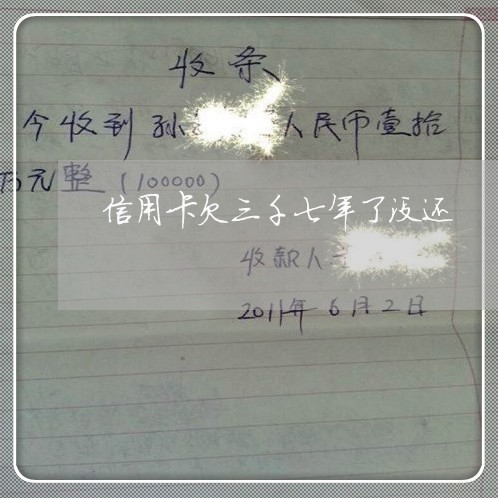 收条
今收到孙 人民币壹拾
万元整（100000）
信用卡欠三千七年了没还
收款人
2011年6月2日